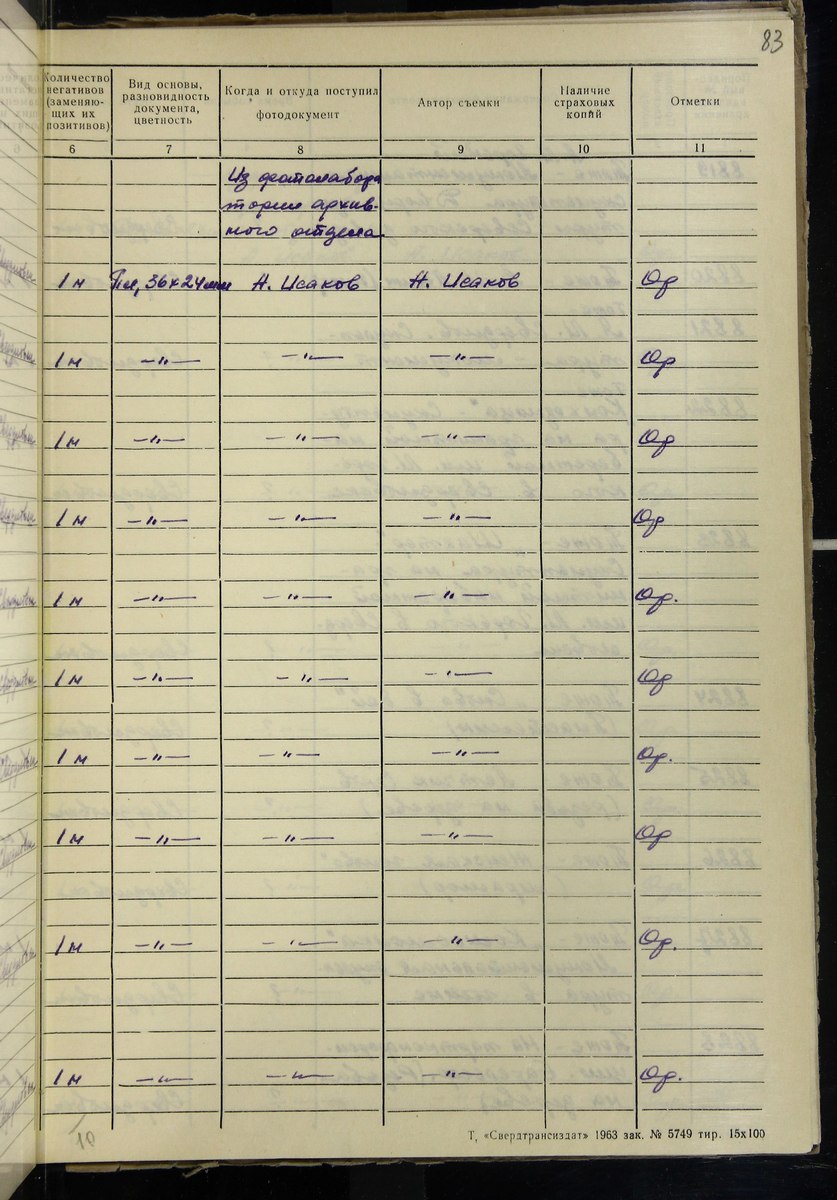 83
Количество негативов (заменяю- щих их позитивов) Вид основы, разновидность документа, цветность Когда и откуда поступил фотодокумент Автор съемки Наличие страховых копий Отметки
6 7 8 9 10 11
Из фотолабора
тории архив-
ного отдела
1 н Пл, 36×24мм А. Исаков А. Исаков Ор
1 н —"— —"— —"— Ор
1 н —"— —"— —"— Ор
1 н —"— —"— —"— Ор
1 н —"— —"— —"— Ор.
1 н —"— —"— —"— Ор
1 н —"— —"— —"— Ор.
1 н —"— —"— —"— Ор
1 н —"— —"— —"— Ор.
1 н —"— —"— —"— Ор.
10
Т, «Свердтрансиздат» 1963 зак. № 5749 тир. 15х100